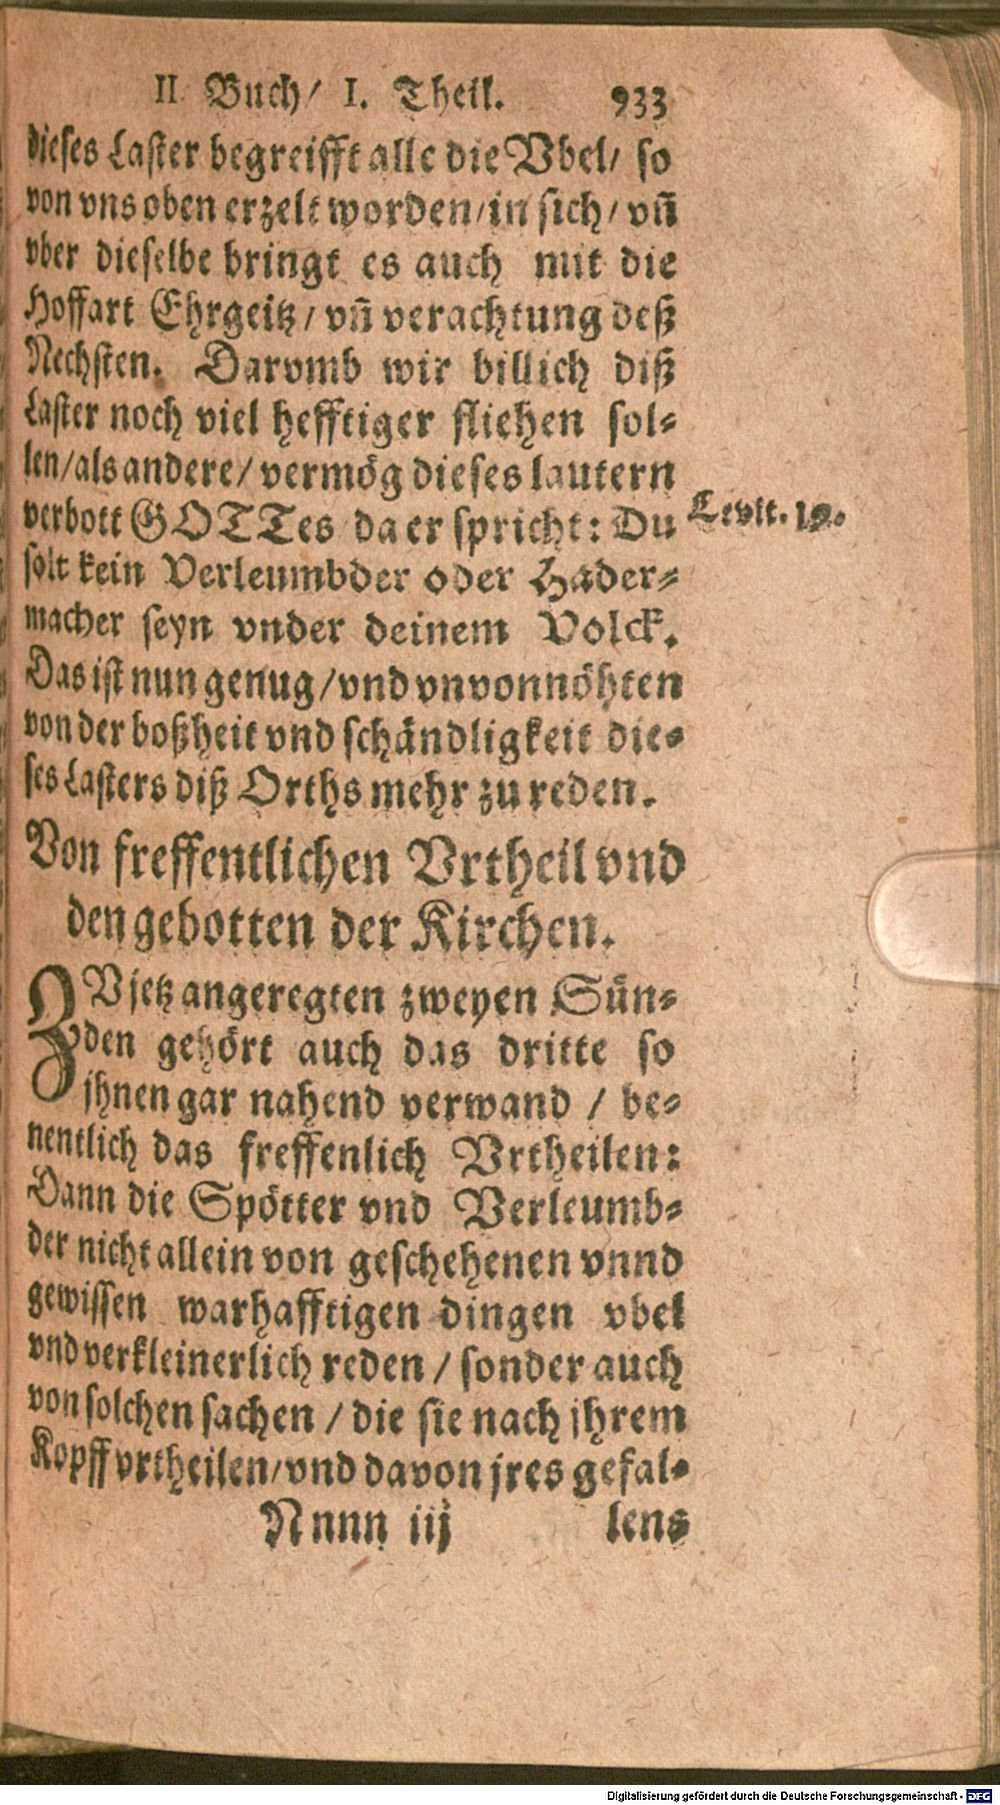 II Buch/ I. Theil. 933
dieses Laster begreifft alle die Vbel/ so
von vns oben erzelt worden/in sich/ vñ
vber dieselbe bringt es auch mit die
Hoffart Ehrgeitz/ vñ verachtung deß
Nechsten. Darvmb wir billich diß
Laster noch viel hefftiger fliehen sol-
len/als andere/ vermög dieses lautern
verbott GOTTes da er spricht: Du
Levit. 19.
solt kein Verleumbder oder Hader-
macher seyn vnder deinem Volck.
Das ist nun genug/vnd vnvonnöhten
von der boßheit vnd schändligkeit die-
ses Lasters diß Orths mehr zu reden.
Von freffentlichen Vrtheil vnd
den gebotten der Kirchen.
ZV jetz angeregten zweyen Sün-
den gehört auch das dritte so
jhnen gar nahend verwand / be-
nentlich das freffenlich Vrtheilen:
Dann die Spötter vnd Verleumb-
der nicht allein von geschehenen vnnd
gewissen warhafftigen dingen vbel
vnd verkleinerlich reden / sonder auch
von solchen sachen / die sie nach jhrem
Kopff vrtheilen/vnd davon jres gefal-
Nnnn iij lens
Digitalisierung gefördert durch die Deutsche Forschungsgemeinschaft - DFG